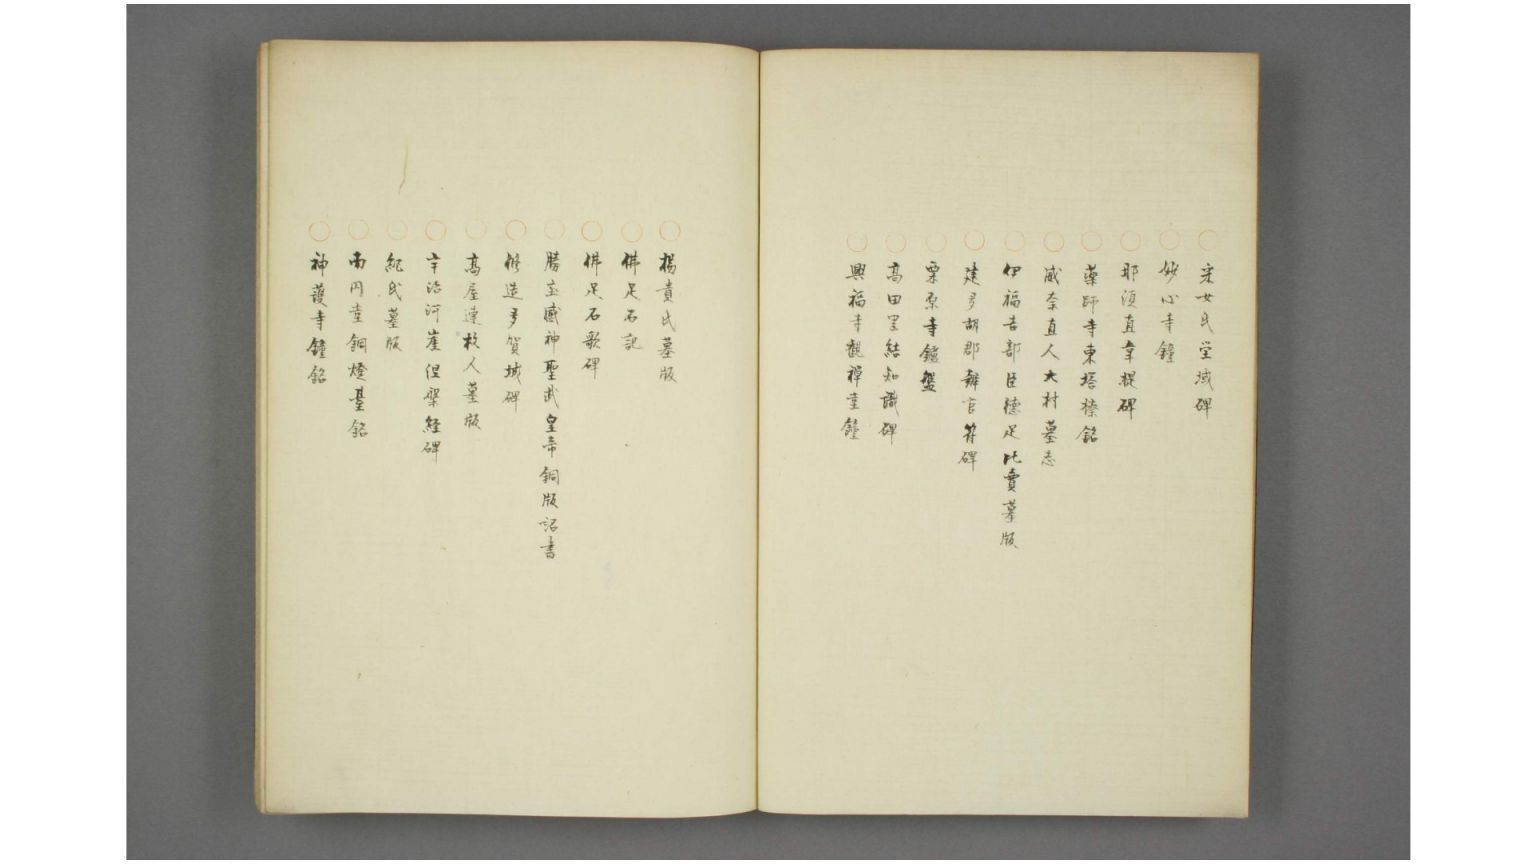 ○采女氏塋域碑
○妙心寺鐘
○那須直韋提碑
○薬師寺東塔檫銘
○威奈真人大村墓志
○伊福吉部臣德足比賣墓版
○建多胡郡辨官符碑
○栗原寺鑪盤
○高田里結知識碑
○興福寺観禅堂鐘
○楊貴氏墓版
○佛足石記
○佛足石歌碑
○勝宝感神聖武皇帝銅版詔書
○修造多賀城碑
○高屋連枚人墓版
○宇治河崖涅槃経碑
○紀氏墓版
○南円堂銅燈䑓銘
○神護寺鐘銘